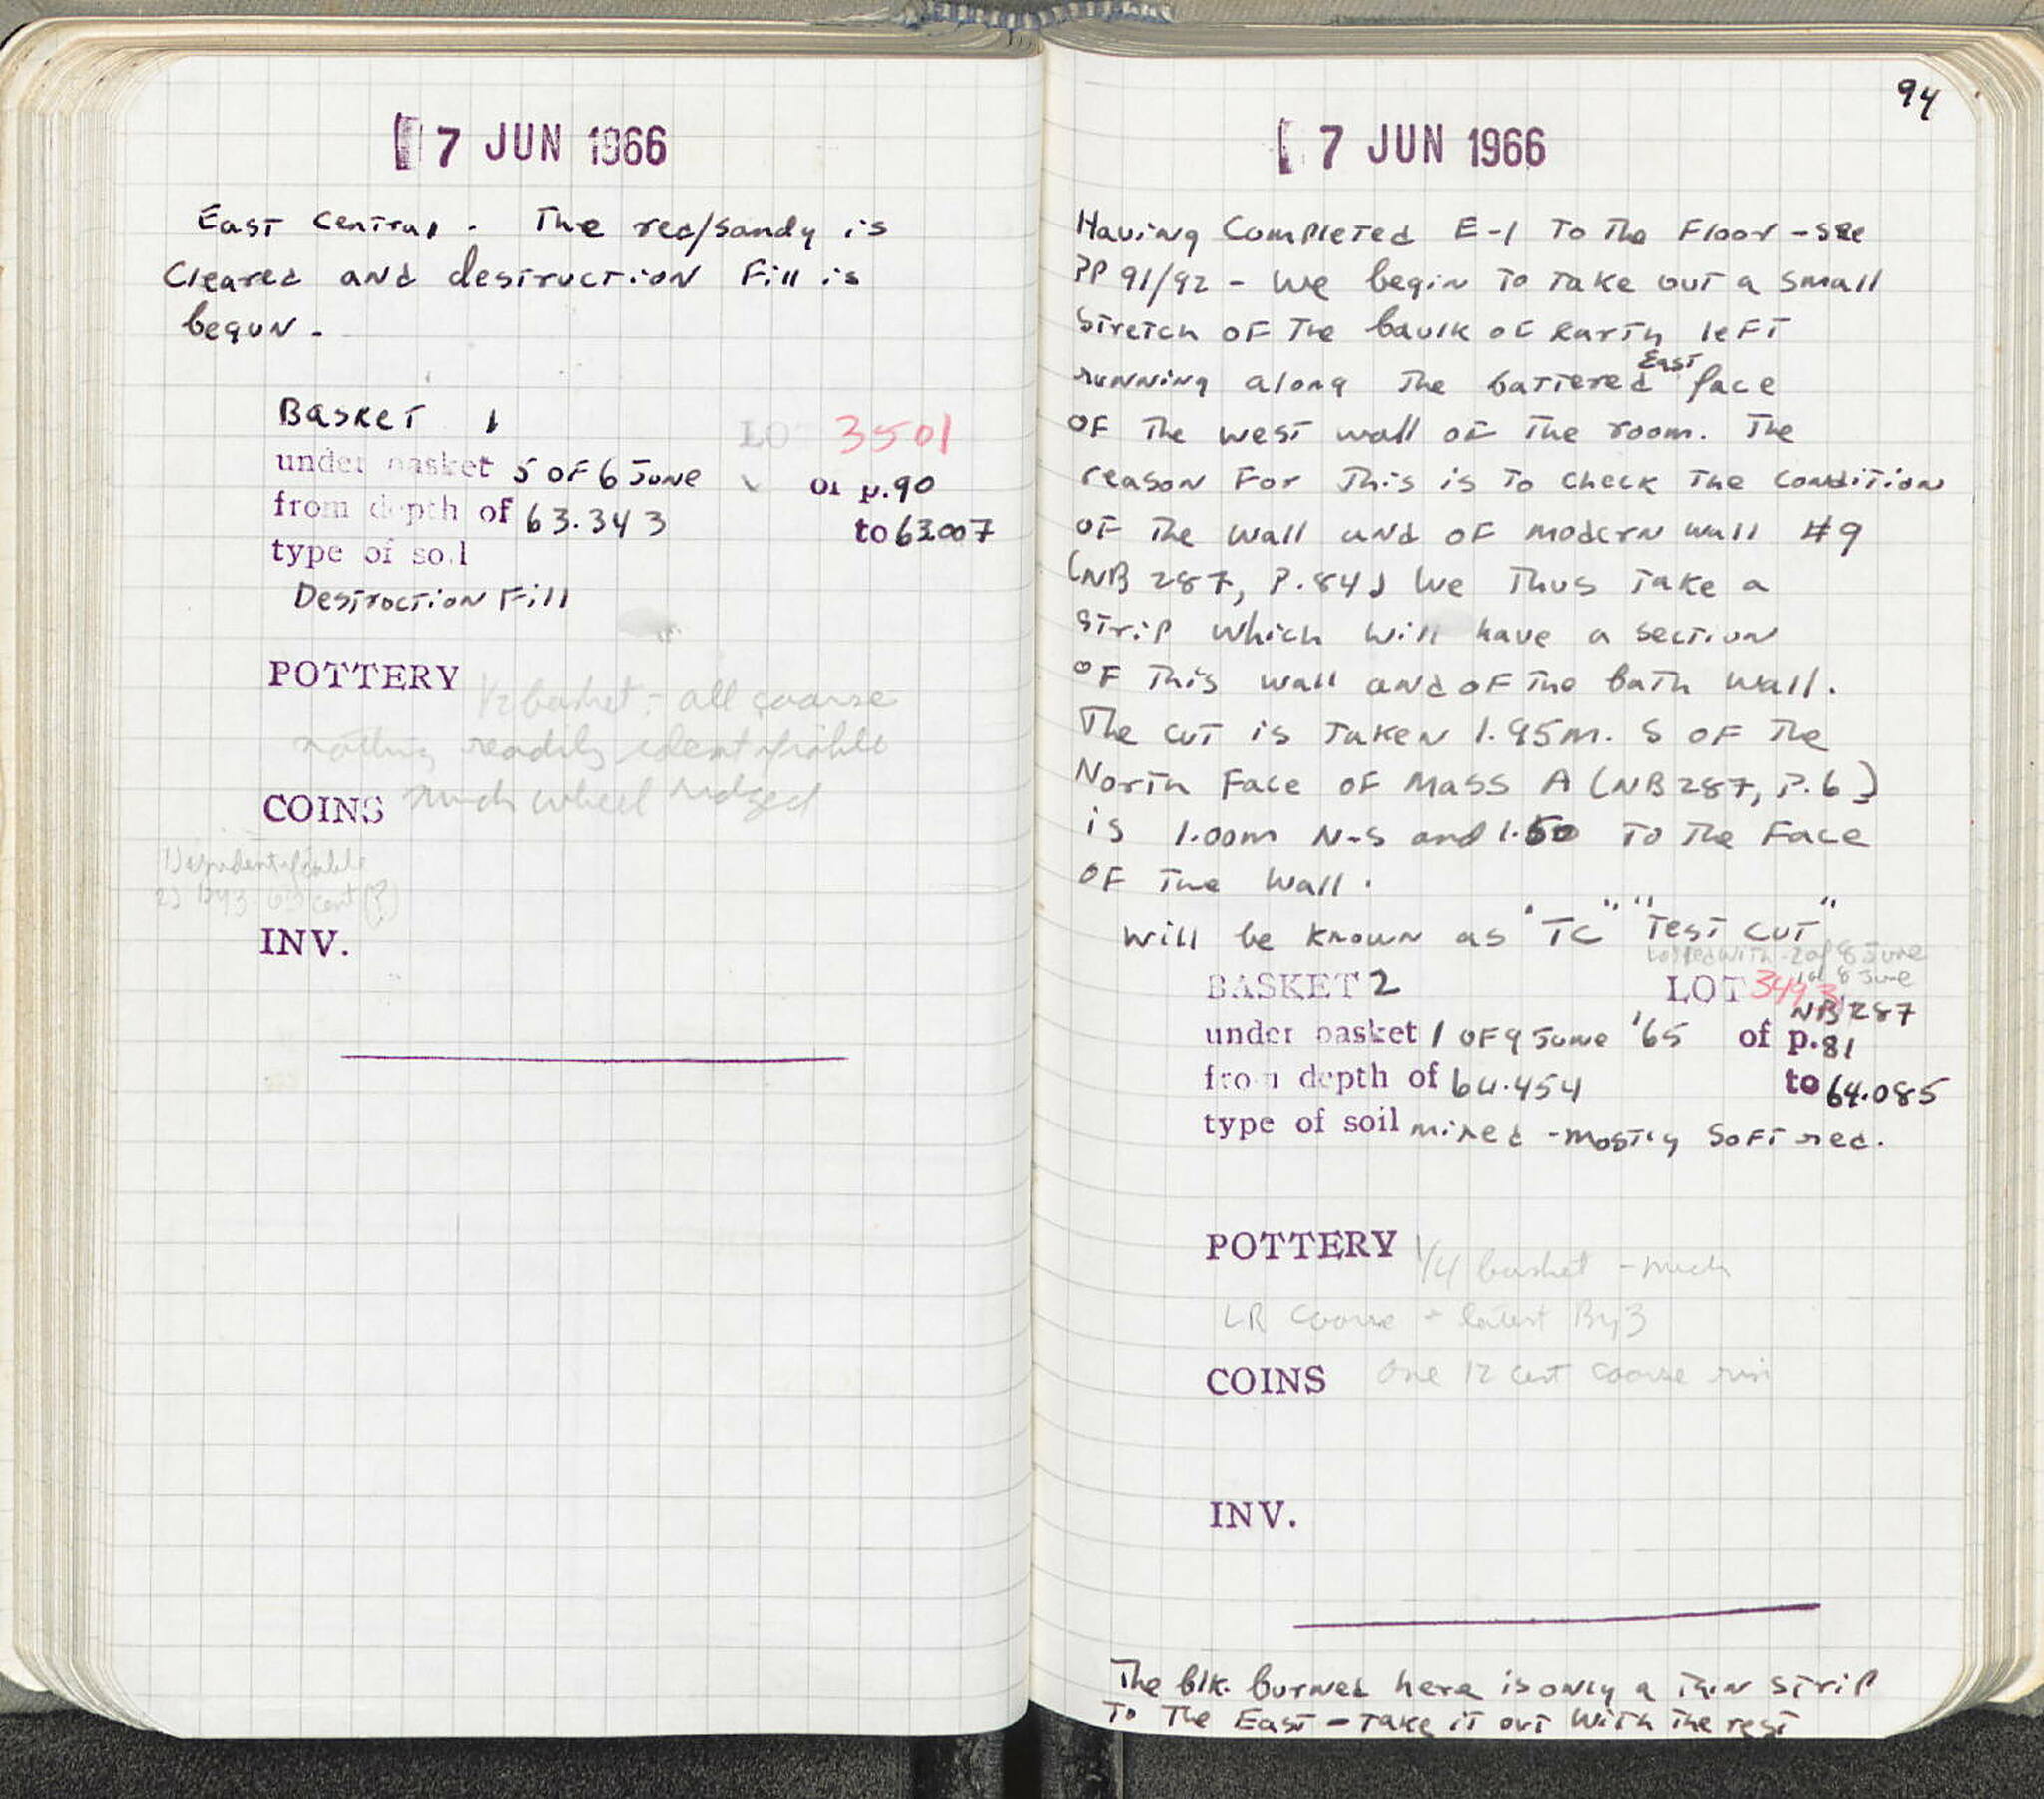 7 JUN 1966
East Central. The red/sandy is
Cleared and destruction Fill is
begun.
Basket 1
LOT 3501
under basket 5 of 6 June of p.90
from depth of 63.343 to 63.007
type of soil
Destruction Fill
POTTERY 1/2 basket - all coarse
nothing readily identifiable
COINS much wheel ridged
2) By3
INV.
94
7 JUN 1966
Having Completed E-1 To The Floor - see
PP 91/92 - We begin to take out a small
Stretch of The baulk of Earth left
running along The battered East face
OF The West wall of The room. The
reason For This is to check The Condition
OF The Wall and of modern wall #9
(NB 287, P.84) We Thus Take a
Strip which will have a section
OF This wall and of The bath wall.
The cut is taken 1.95m. S of The
North Face of Mass A (NB 287, P.6)
is 1.00m N-S and 1.50 To The Face
OF The Wall.
will be known as "TC" "Test Cut"
Lotted with 2 of 8 June
1 of 8 June
BASKET 2 LOT 3493
NB 287
under basket 1 of 9 June '65 of p.81
from depth of 64.454 to 64.085
type of soil mixed - mostly soft red.
POTTERY 1/4 basket - much
LR coarse - latest By3
COINS One 12 cent coarse rim
INV.
The blk. burned here is only a thin strip
To The East - Take it out with The rest